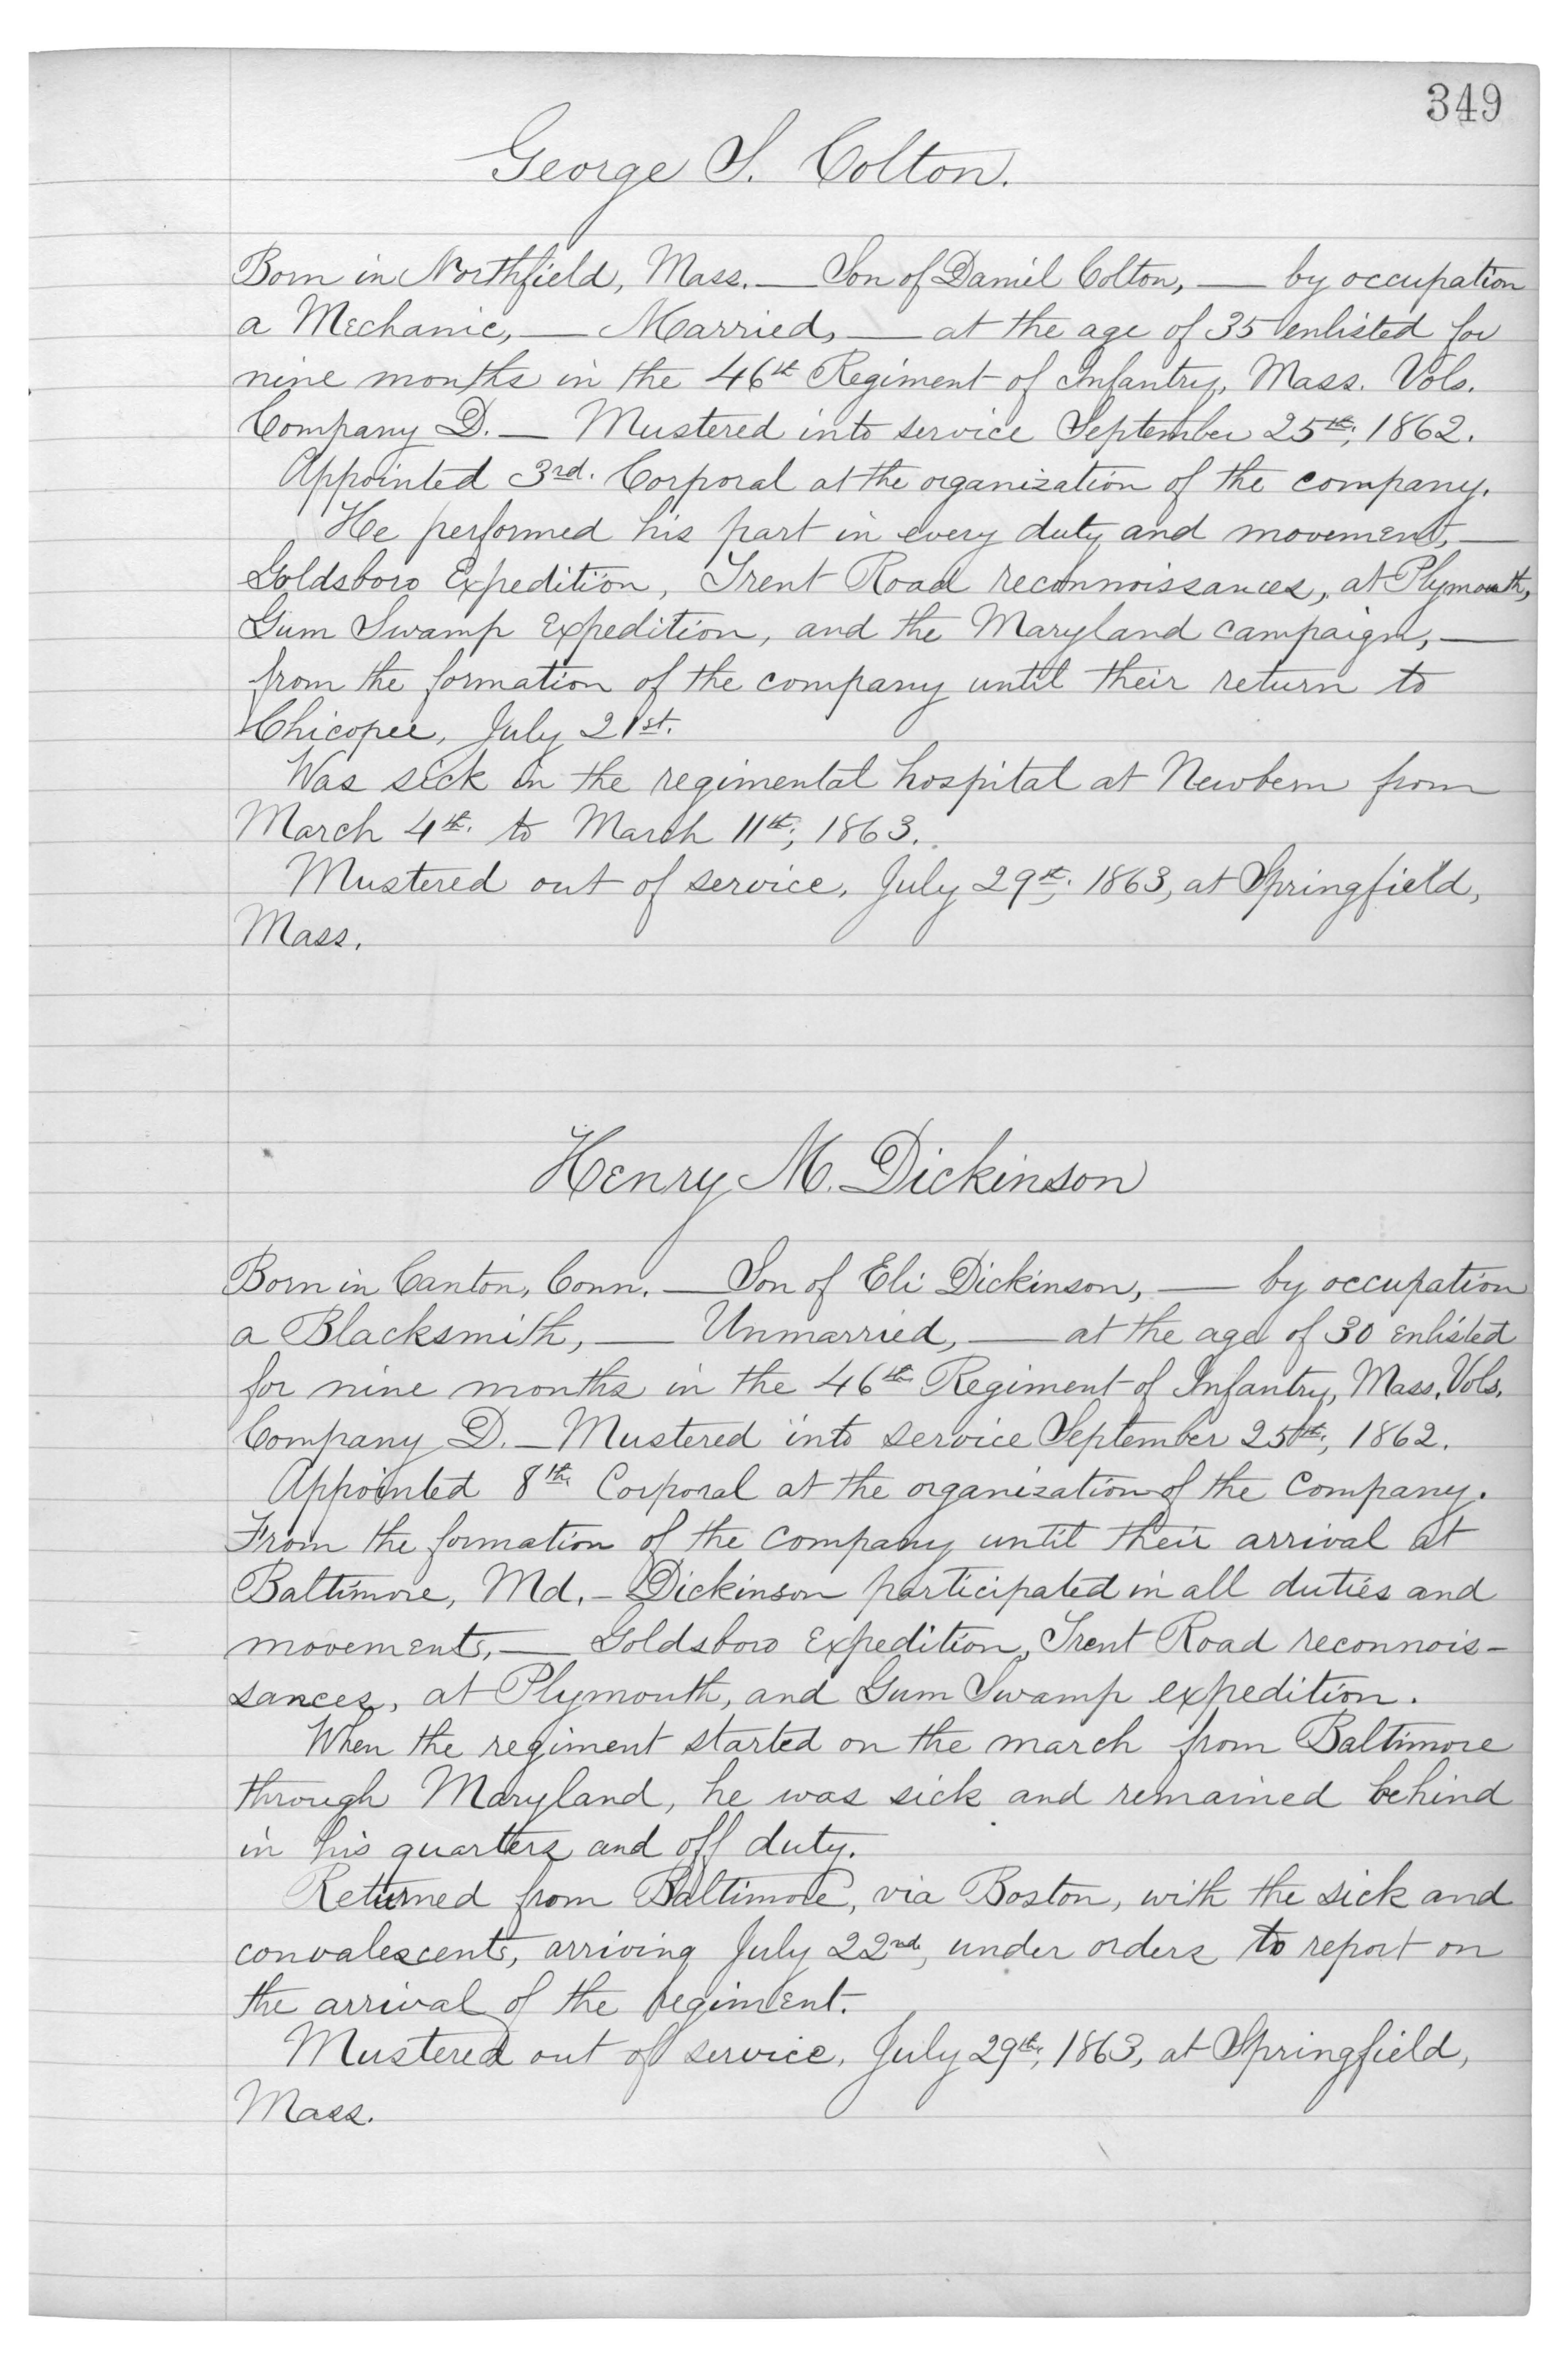 349
George S. Colton.
Born in Northfield, Mass. — Son of Daniel Colton, — by occupation
a Mechanic, — Married, — at the age of 35 enlisted for
nine months in the 46th Regiment of Infantry, Mass. Vols.
Company D. — Mustered into service September 25th, 1862.
Appointed 3rd. Corporal at the organization of the company.
He performed his part in every duty and movement, —
Goldsboro Expedition, Trent Road reconnoissances, at Plymouth,
Gum Swamp Expedition, and the Maryland campaign, —
from the formation of the company until their return to
Chicopee, July 21st.
Was sick in the regimental hospital at Newbern from
March 4th. to March 11th, 1863.
Mustered out of service, July 29th, 1863, at Springfield,
Mass.
Henry M. Dickinson
Born in Canton, Conn. — Son of Eli Dickinson, — by occupation
a Blacksmith, — Unmarried, — at the age of 30 enlisted
for nine months in the 46th Regiment of Infantry, Mass. Vols.
Company D. — Mustered into service September 25th, 1862.
Appointed 8th Corporal at the organization of the Company.
From the formation of the company until their arrival at
Baltimore, Md. — Dickinson participated in all duties and
movements, — Goldsboro Expedition, Trent Road reconnois-
sances, at Plymouth, and Gum Swamp expedition.
When the regiment started on the march from Baltimore
through Maryland, he was sick and remained behind
in his quarters and off duty.
Returned from Baltimore, via Boston, with the sick and
convalescents, arriving July 22nd, under orders to report on
the arrival of the regiment.
Mustered out of service, July 29th, 1863, at Springfield,
Mass.